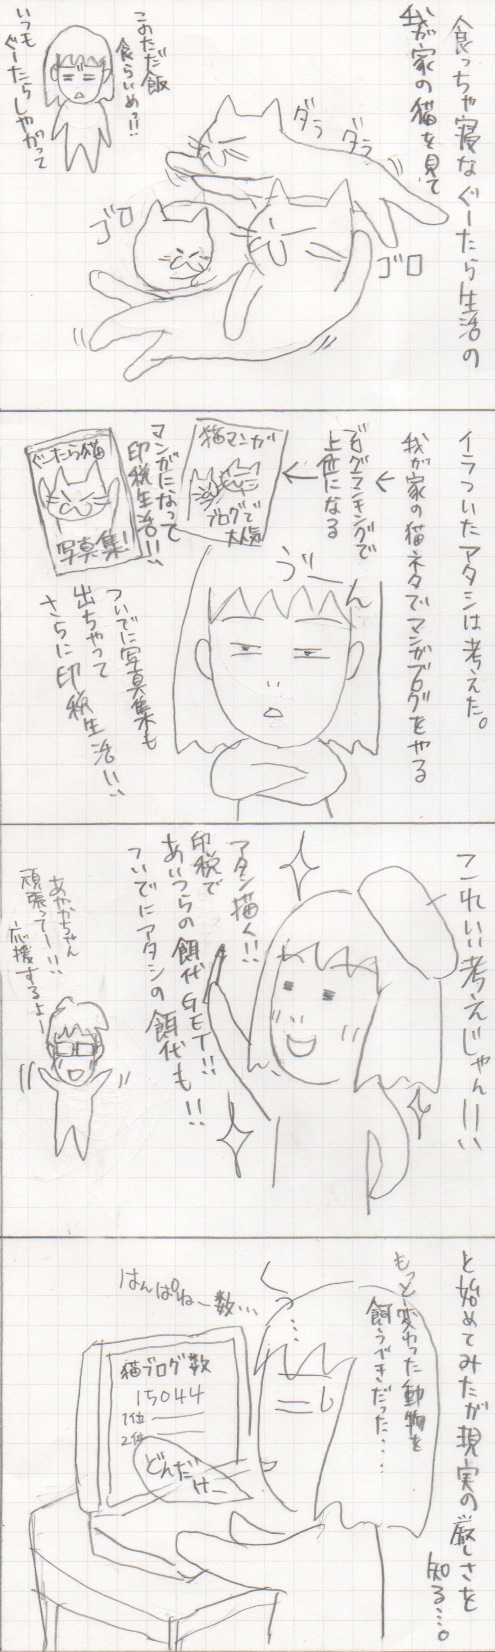 食っちゃ寝なぐーたら生活の
我が家の猫を見て
ダラ
ダラ
ゴロ
ゴロ
このただ飯
食らいめっ!!
いつも
ぐーたらしやがって
イラついたアタシは考えた。
我が家の猫ネタでマンガブログをやる
↓
ブログランキングで
上位になる
←
猫マンガ
ブログで
大人気
マンガになって
印税生活!!
ぐーたら猫
写真集!
うーん
ついでに写真集も
出ちゃって
さらに印税生活!!
これいい考えじゃん!!
アタシ描く!!
印税で
あいつらの餌代GET!!
ついでにアタシの餌代も!!
あやかちゃん
頑張ってー!!
応援するよー
と始めてみたが現実の厳しさを
知る…。
もっと変わった動物を
飼うべきだった…
くっ…
はんぱねー数…
猫ブログ数
15044
1位
2位
どんだけー